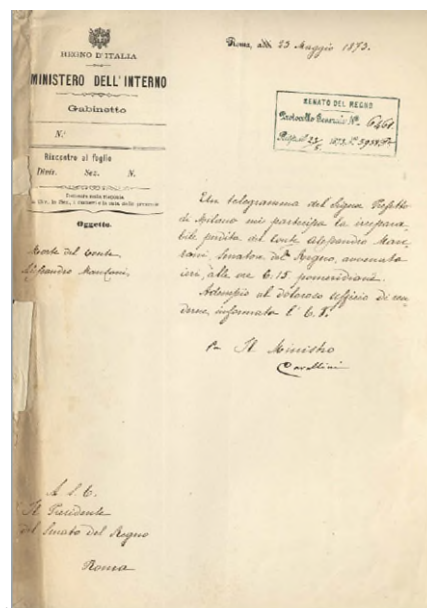 REGNO D'ITALIA
MINISTERO DELL'INTERNO
Gabinetto
N.°
Risposta al foglio
Divis. Sez. N.
Oggetto
Morte del Conte
Alessandro Manzoni
Roma, addì 23 Maggio 1873.
SENATO DEL REGNO
Protocollo Generale N.° 6461
Un telegramma del Signor Prefetto
di Milano mi partecipa la irrepara-
bile perdita del Conte Alessandro Man-
zoni, Senatore del Regno, avvenuta
ieri, alle ore 6.15 pomeridiane.
Adempio al doloroso ufficio di ren-
derne informata l'E. V.
Pel Il Ministro
Cavallini
A S. E.
Il Presidente
del Senato del Regno
Roma